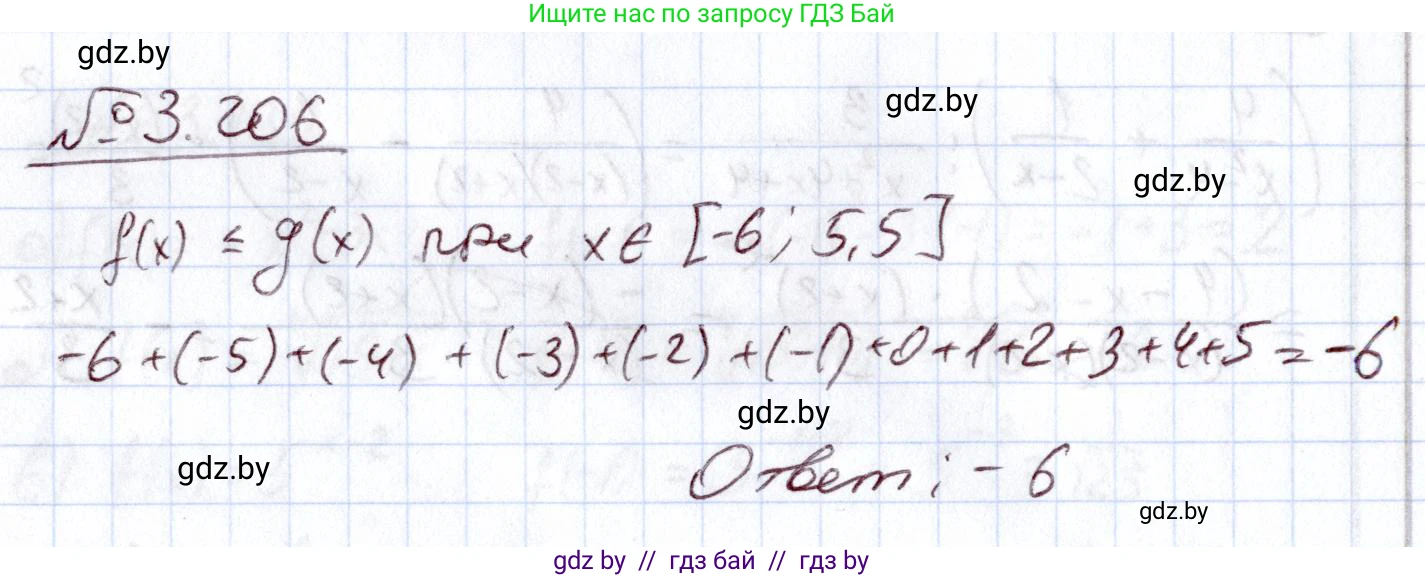 Ищите нас по запросу ГДЗ Бай
gdz.by
№ 3.206
gdz.by
gdz.by
f(x) ≤ g(x) при x ∈ [-6; 5,5]
-6 + (-5) + (-4) + (-3) + (-2) + (-1) + 0 + 1 + 2 + 3 + 4 + 5 = -6
gdz.by
gdz.by
Ответ: -6
gdz.by
gdz.by // гдз бай // гдз by